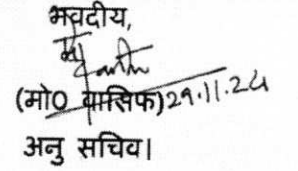 भवदीय,
(मो0 वासिफ) 29.11.24
अनु सचिव।